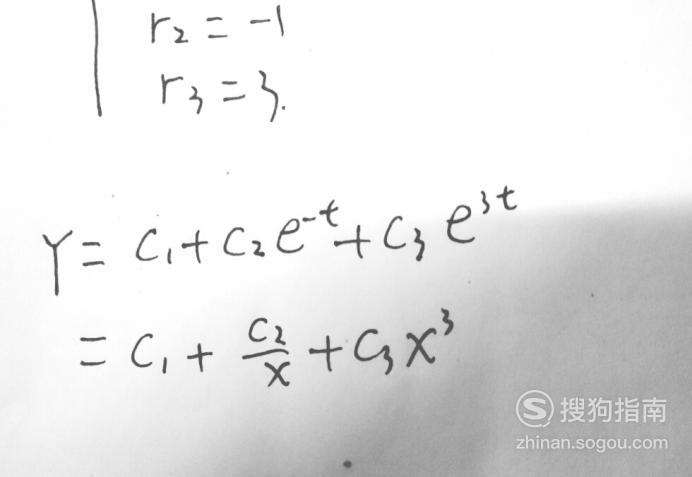 r₂ = -1
r₃ = 3.
Y = C₁ + C₂e⁻ᵗ + C₃e³ᵗ
= C₁ + C₂/x + C₃x³
S 搜狗指南
zhinan.sogou.com